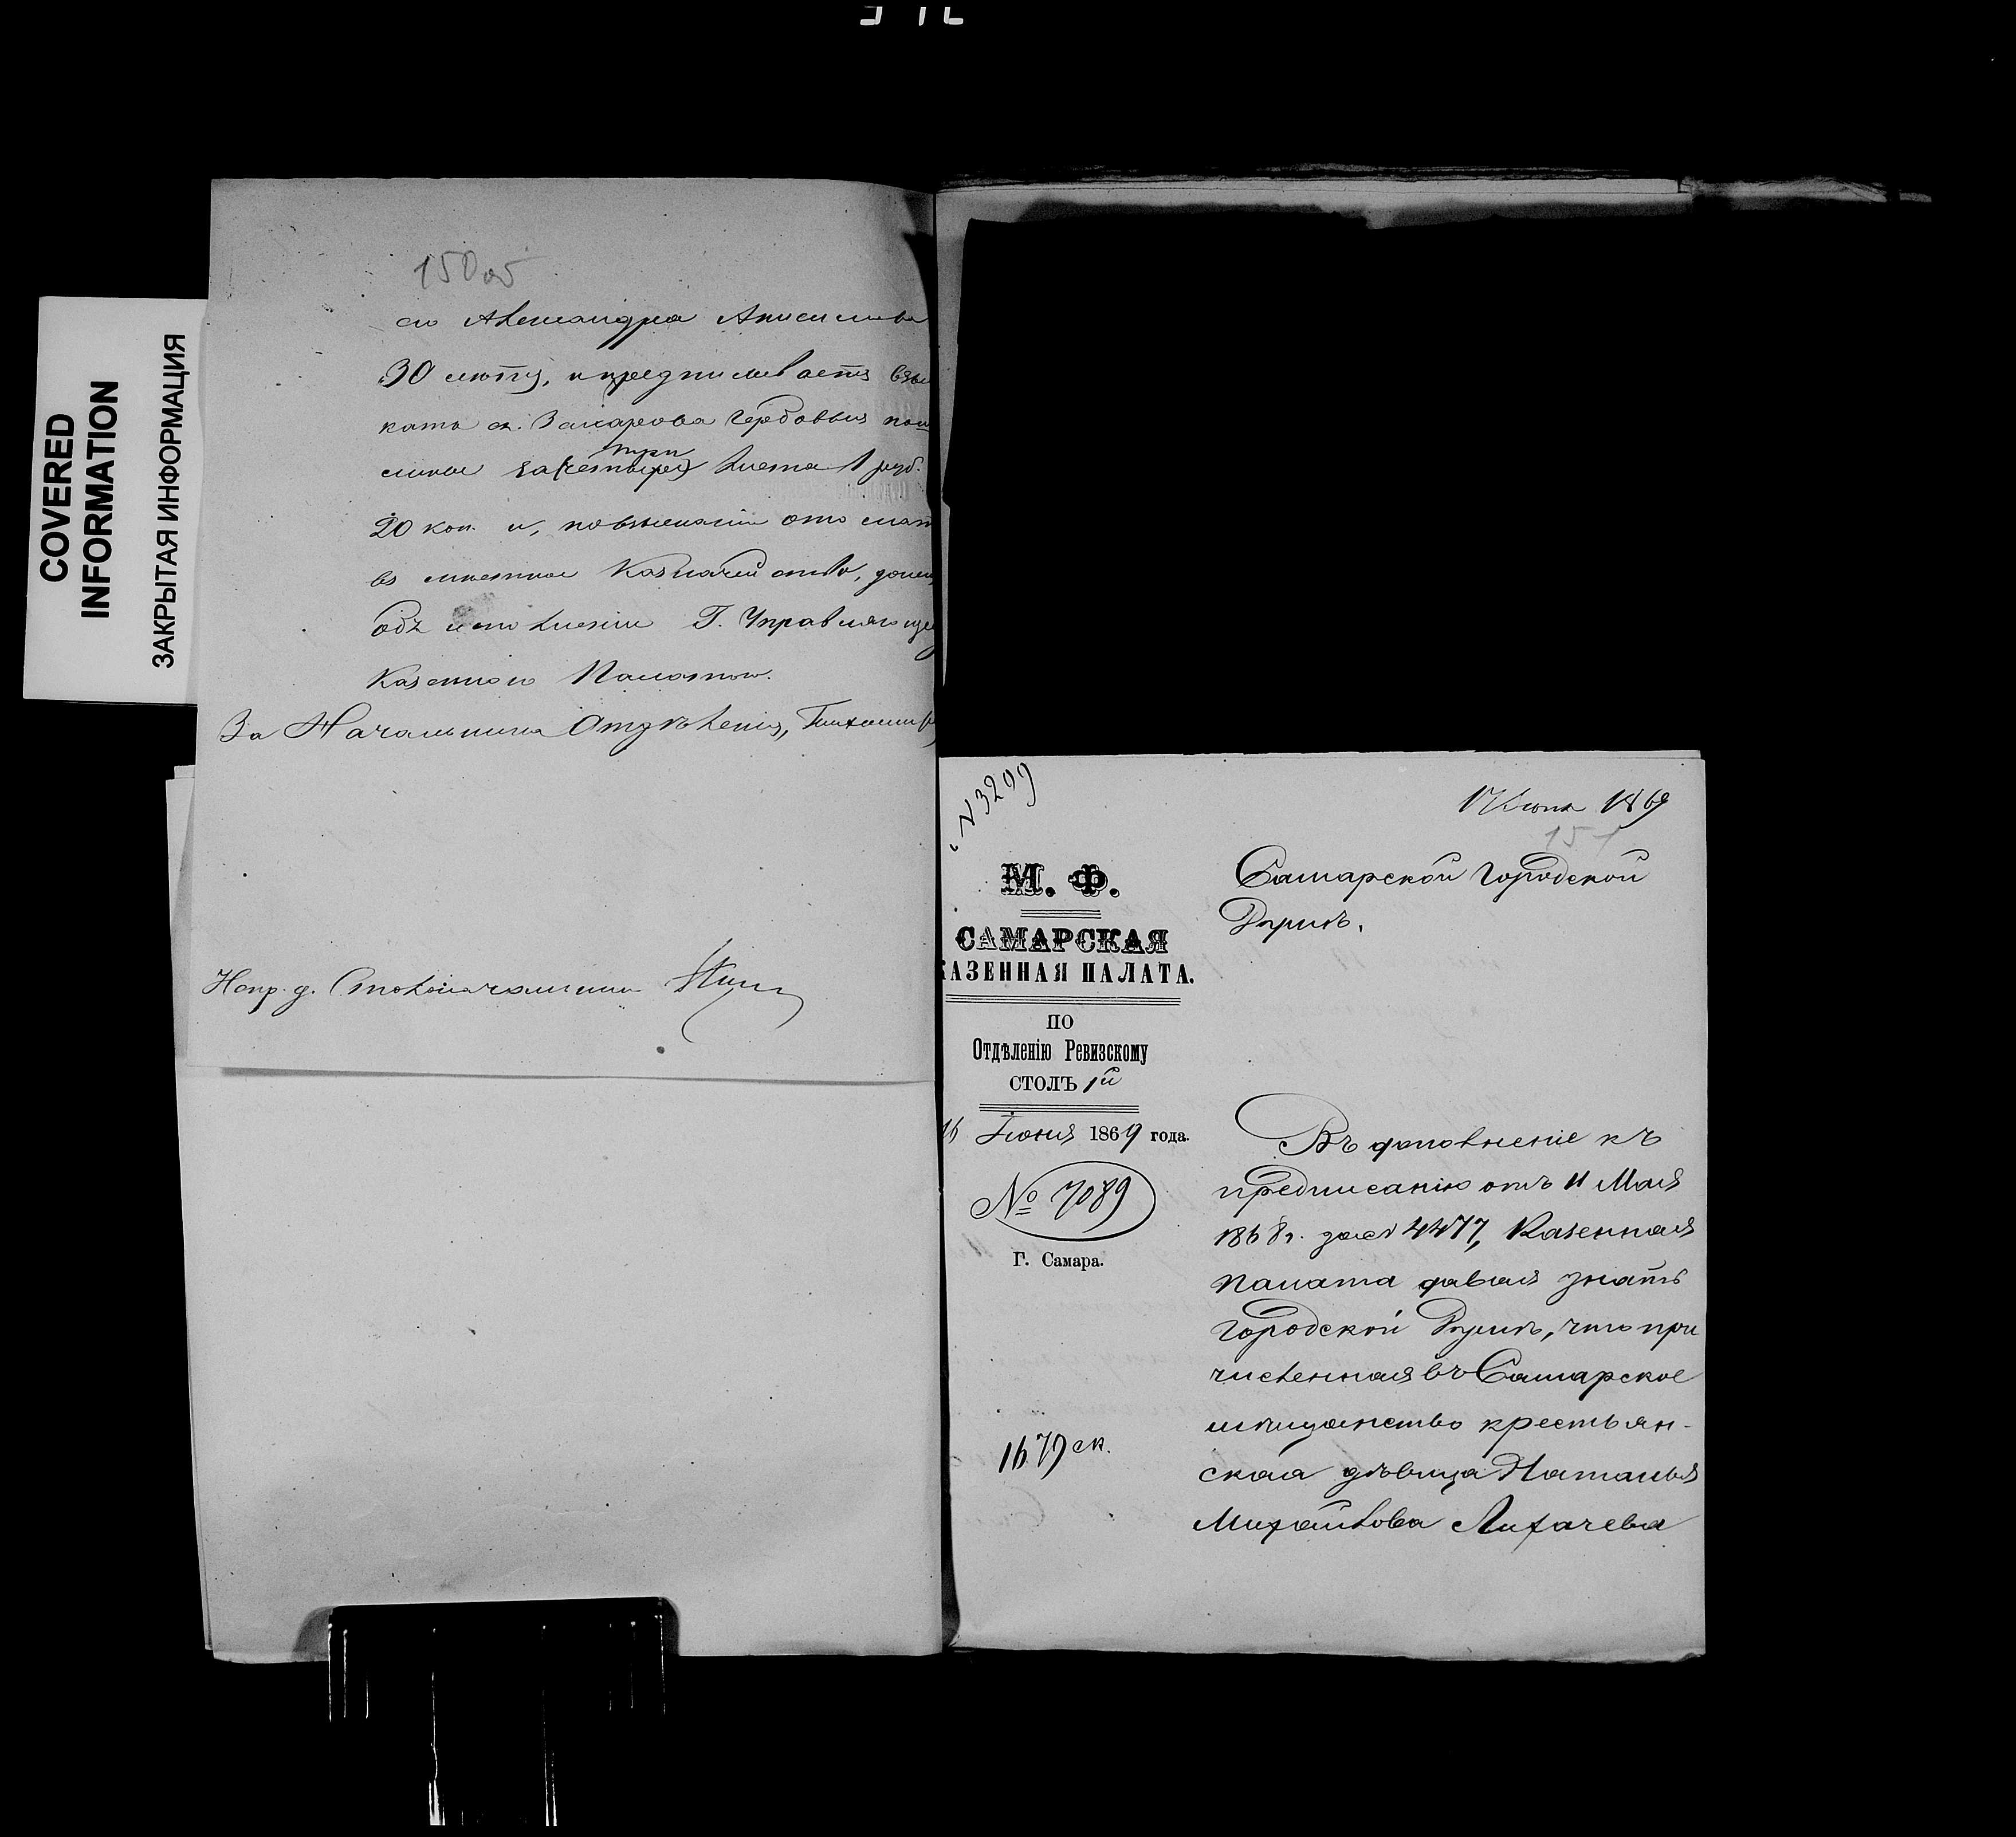 COVERED
INFORMATION
ЗАКРЫТАЯ ИНФОРМАЦИЯ
150об
Александра Анисимова
30 лѣтъ, и предписываетъ взы
кать съ Захарова гербовыя пош
лины за (четыре) три листа 1 руб.
20 коп. и, по взысканіи отослать
въ мѣстное Казначейство,
объ исполненіи Г. Управляюще
Казенною Палатою.
За Начальника Отдѣленія,
Испр. д. Столоначальника
N 3209
17 Іюня 1869
151
М. Ф.
САМАРСКАЯ
КАЗЕННАЯ ПАЛАТА.
ПО
Отдѣленію Ревизскому
СТОЛЪ 1й
16 Іюня 1869 года.
№ 7089
Г. Самара.
1679 ск.
Самарской Городской
Думѣ.
Въ дополненіе къ
предписанію отъ 11 Мая
1868 г. за № 4477, Казенная
Палата давая знать
Городской Думѣ, что при
численная въ Самарское
мѣщанство крестьян-
ская дѣвица Наталья
Михайлова Лихачева